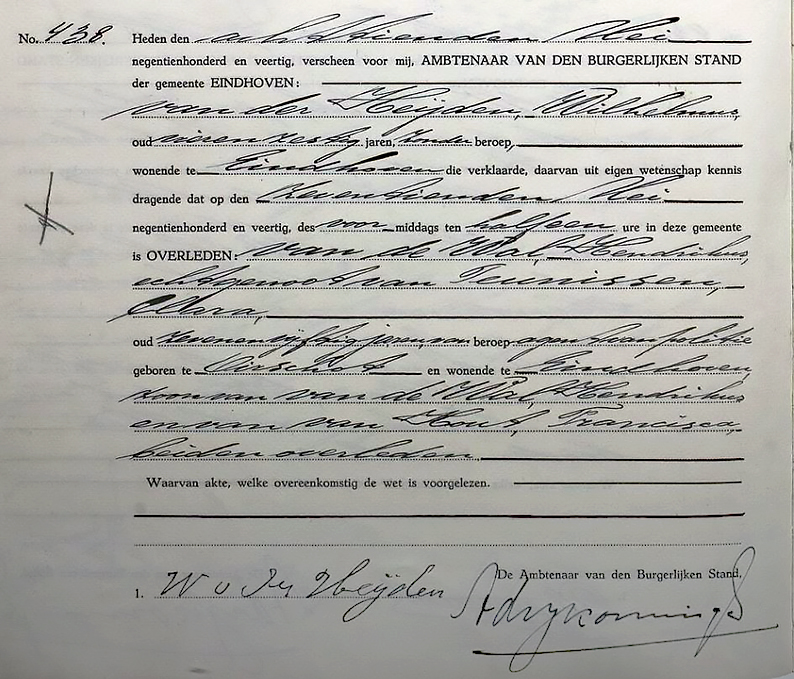 No. 438. Heden den achttienden Mei
negentienhonderd en veertig, verscheen voor mij, AMBTENAAR VAN DEN BURGERLIJKEN STAND
der gemeente EINDHOVEN:
van der Heijden, Wilhelmus,
oud vierenzestig jaren, zonder beroep,
wonende te Eindhoven die verklaarde, daarvan uit eigen wetenschap kennis
dragende dat op den zeventienden Mei
negentienhonderd en veertig, des voor middags ten half een ure in deze gemeente
is OVERLEDEN: van de Wal, Hendrikus,
echtgenoot van Teunissen,
Clara,
oud zevenenvijftig jaren, van beroep agent van politie
geboren te Oirschot en wonende te Eindhoven,
zoon van van de Wal, Hendrikus
en van van Hout, Francisca,
beiden overleden.
Waarvan akte, welke overeenkomstig de wet is voorgelezen.
De Ambtenaar van den Burgerlijken Stand,
1. W v der Heijden